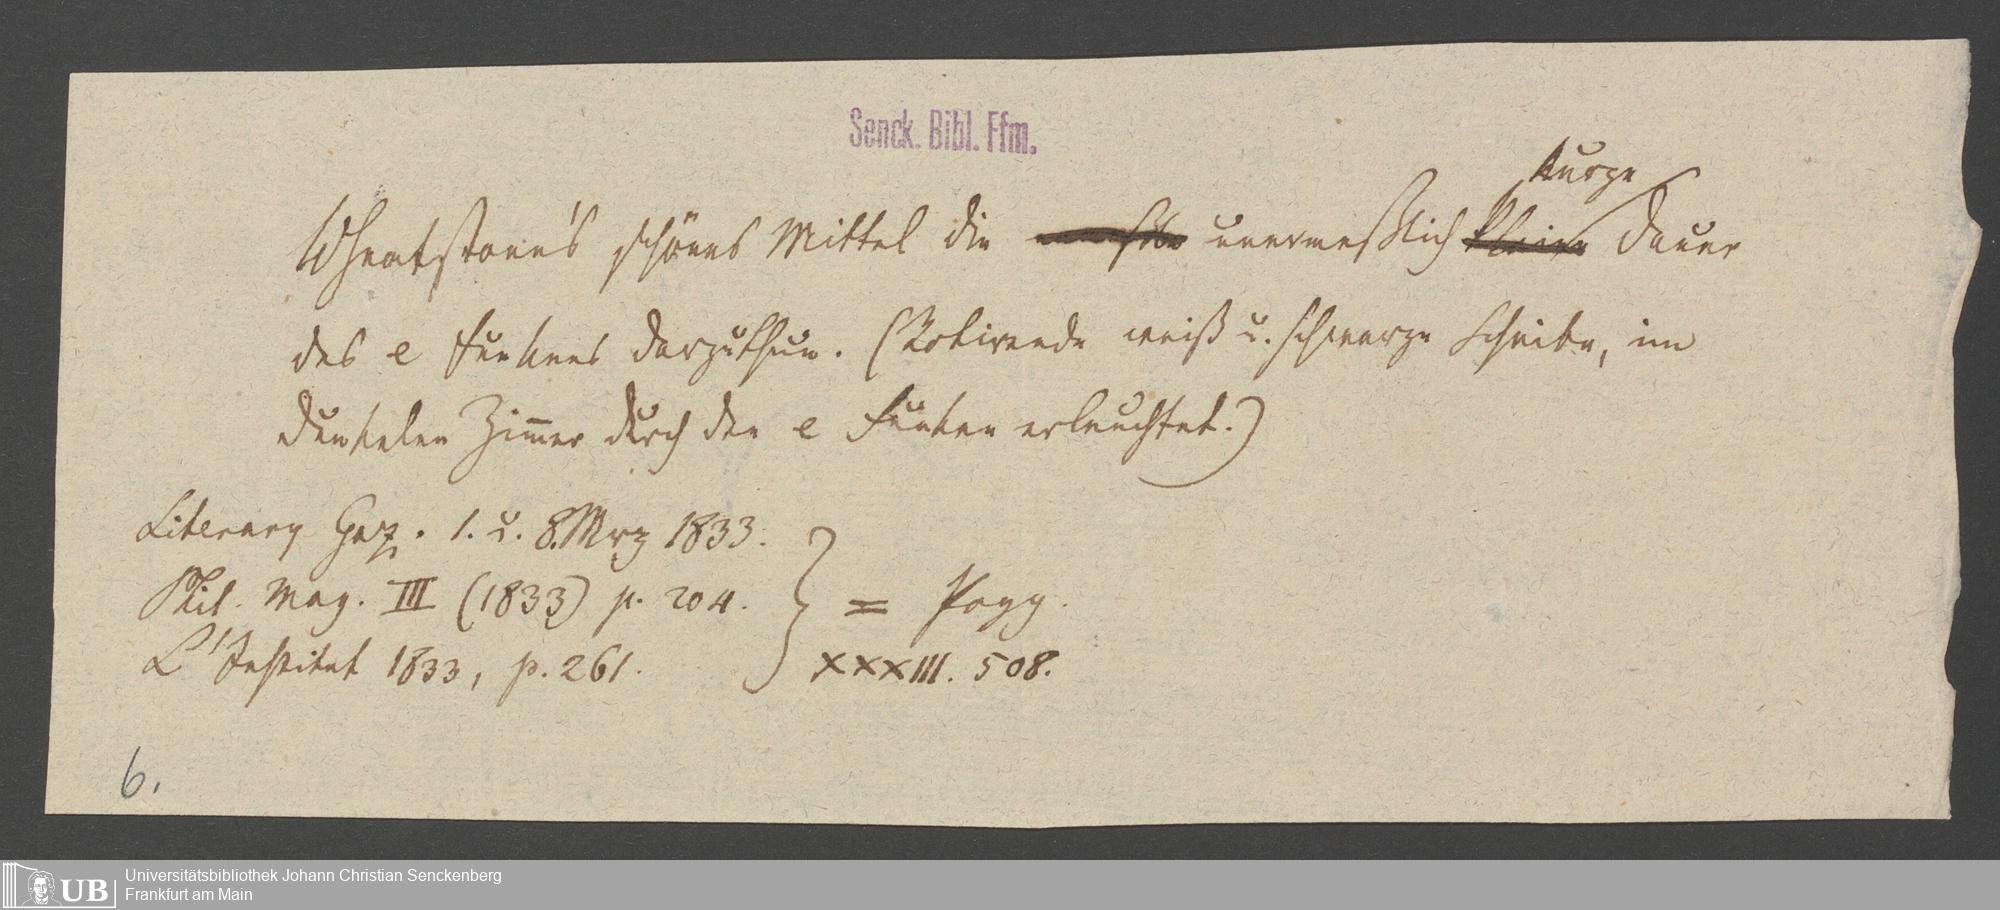 Senck. Bibl. Ffm.
kurze
Wheatstone's schönes Mittel die unermeßlich kleine Dauer
des e Funkens darzuthun. (Rotirende weiß u. schwarze Scheibe, im
dunkelen Zimmer durch den e Funken erleuchtet.)
Literary Gaz. 1. u. 8. Mrz 1833.
Phil. Mag. III (1833) p. 204. } = Pogg.
L'Institut 1833, p. 261. XXXIII. 508.
6.
UB Universitätsbibliothek Johann Christian Senckenberg
Frankfurt am Main